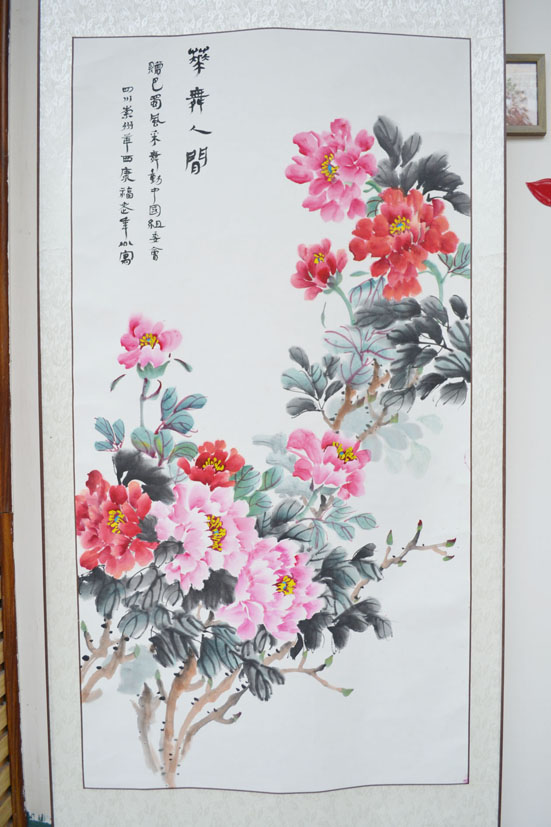 華舞人間
贈巴蜀風采舞動中國組委會
四川崇州華西康福年寫